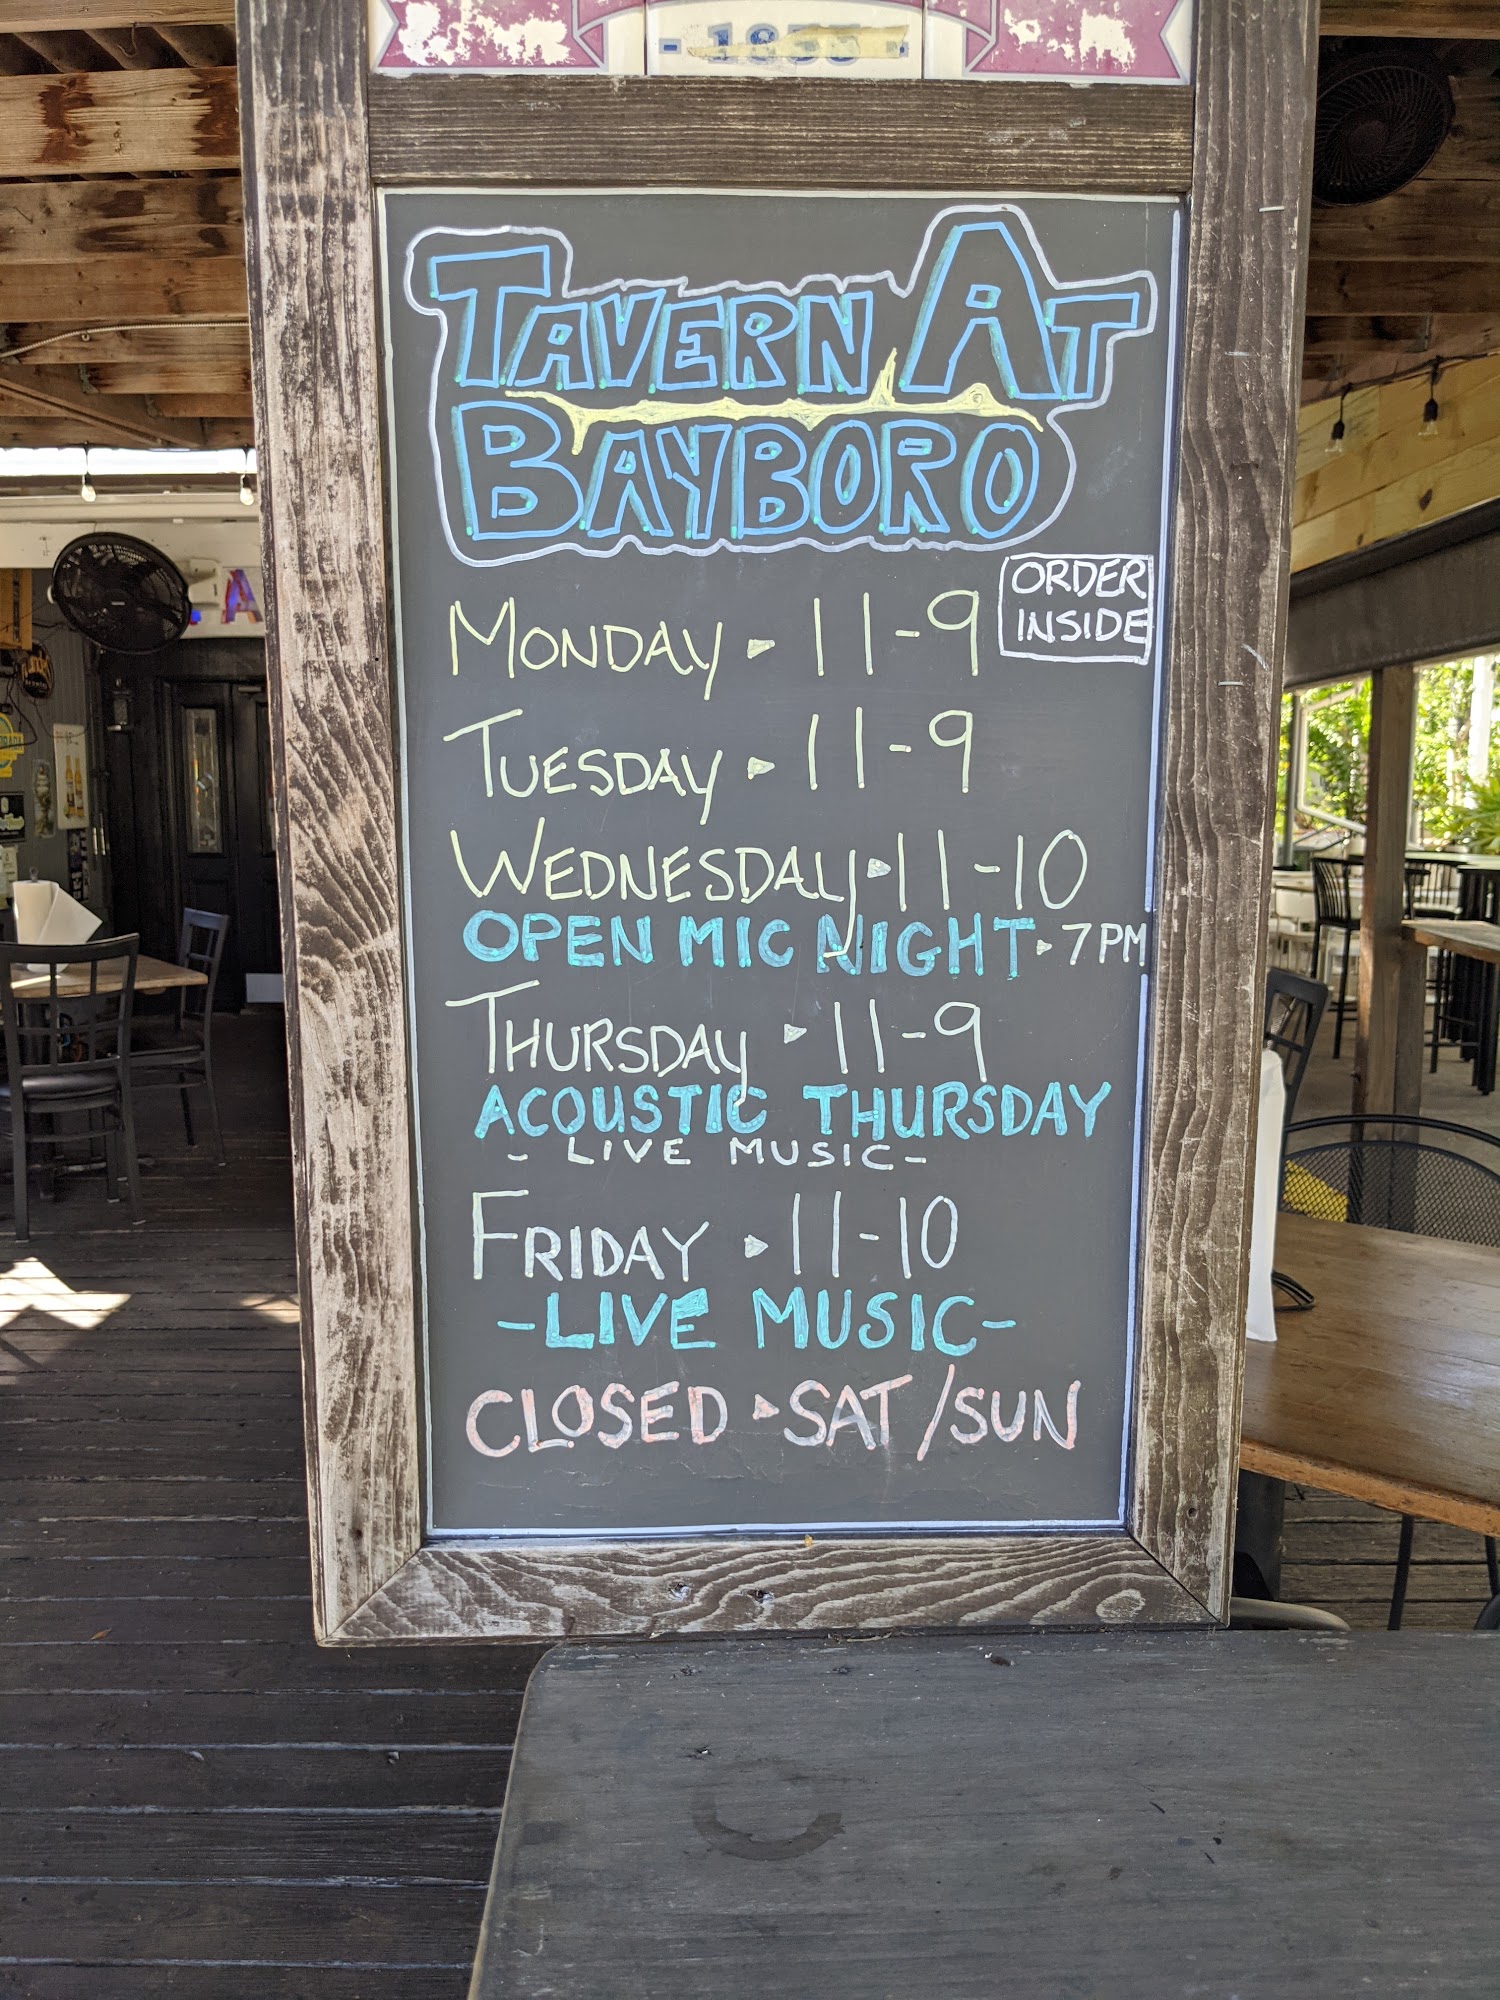 TAVERN AT
BAYBORO
ORDER
INSIDE
MONDAY ▸ 11-9
TUESDAY ▸ 11-9
WEDNESDAY ▸ 11-10
OPEN MIC NIGHT ▸ 7PM
THURSDAY ▸ 11-9
ACOUSTIC THURSDAY
- LIVE MUSIC -
FRIDAY ▸ 11-10
- LIVE MUSIC -
CLOSED ▸ SAT / SUN